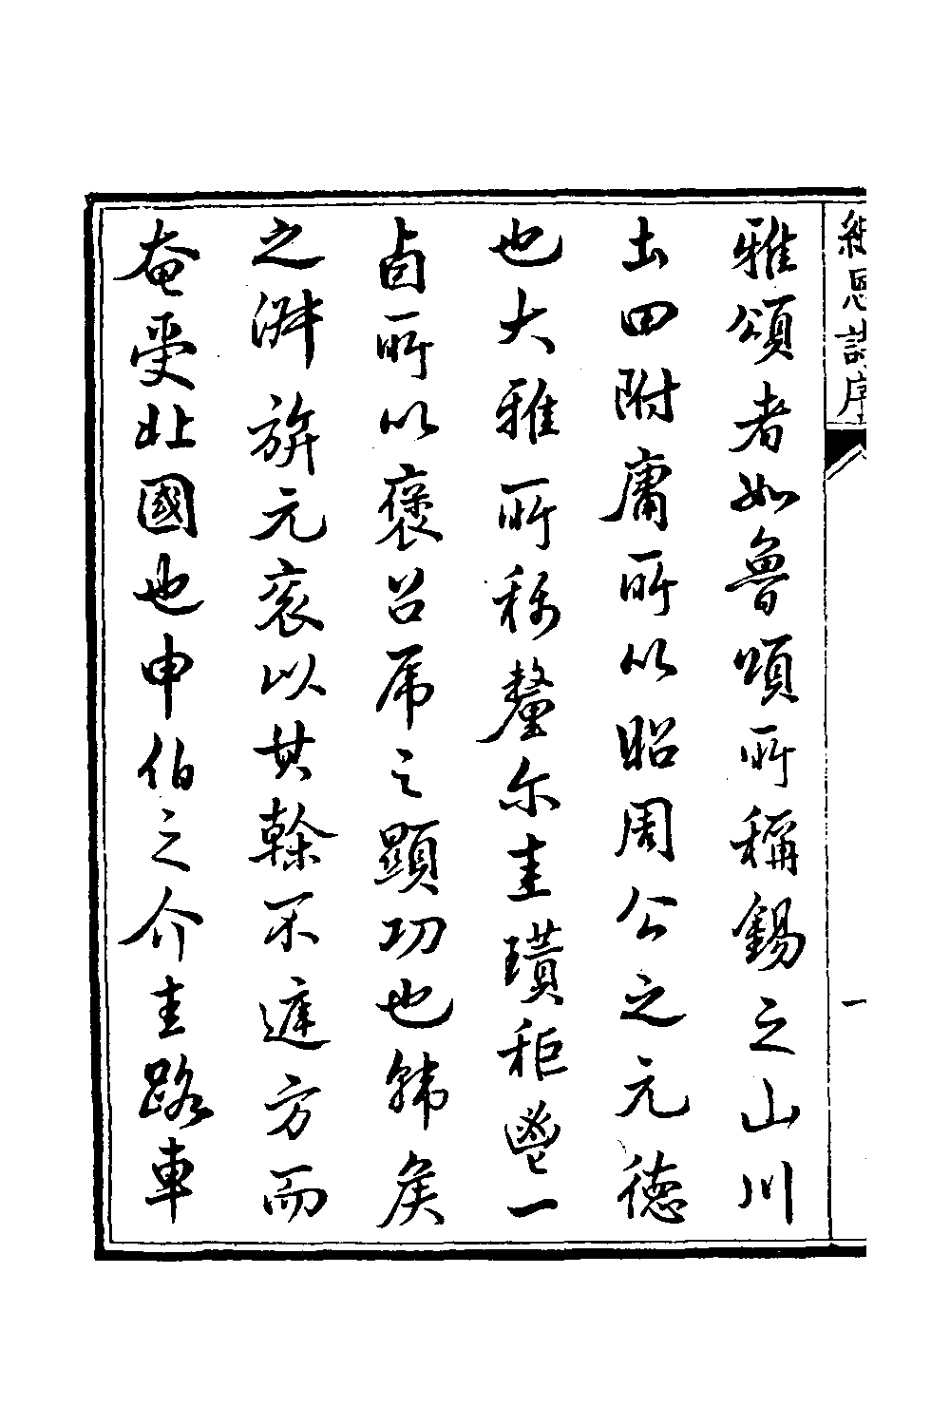 恩詩序
一
雅頌者如魯頌所稱錫之山川
土田附庸所以昭周公之元德
也大雅所称釐尔圭瓚秬鬯一
卣所以褒召虎之顯功也韓侯
之淑旂元衮以其榦不庭方而
奄受北國也申伯之介圭路車